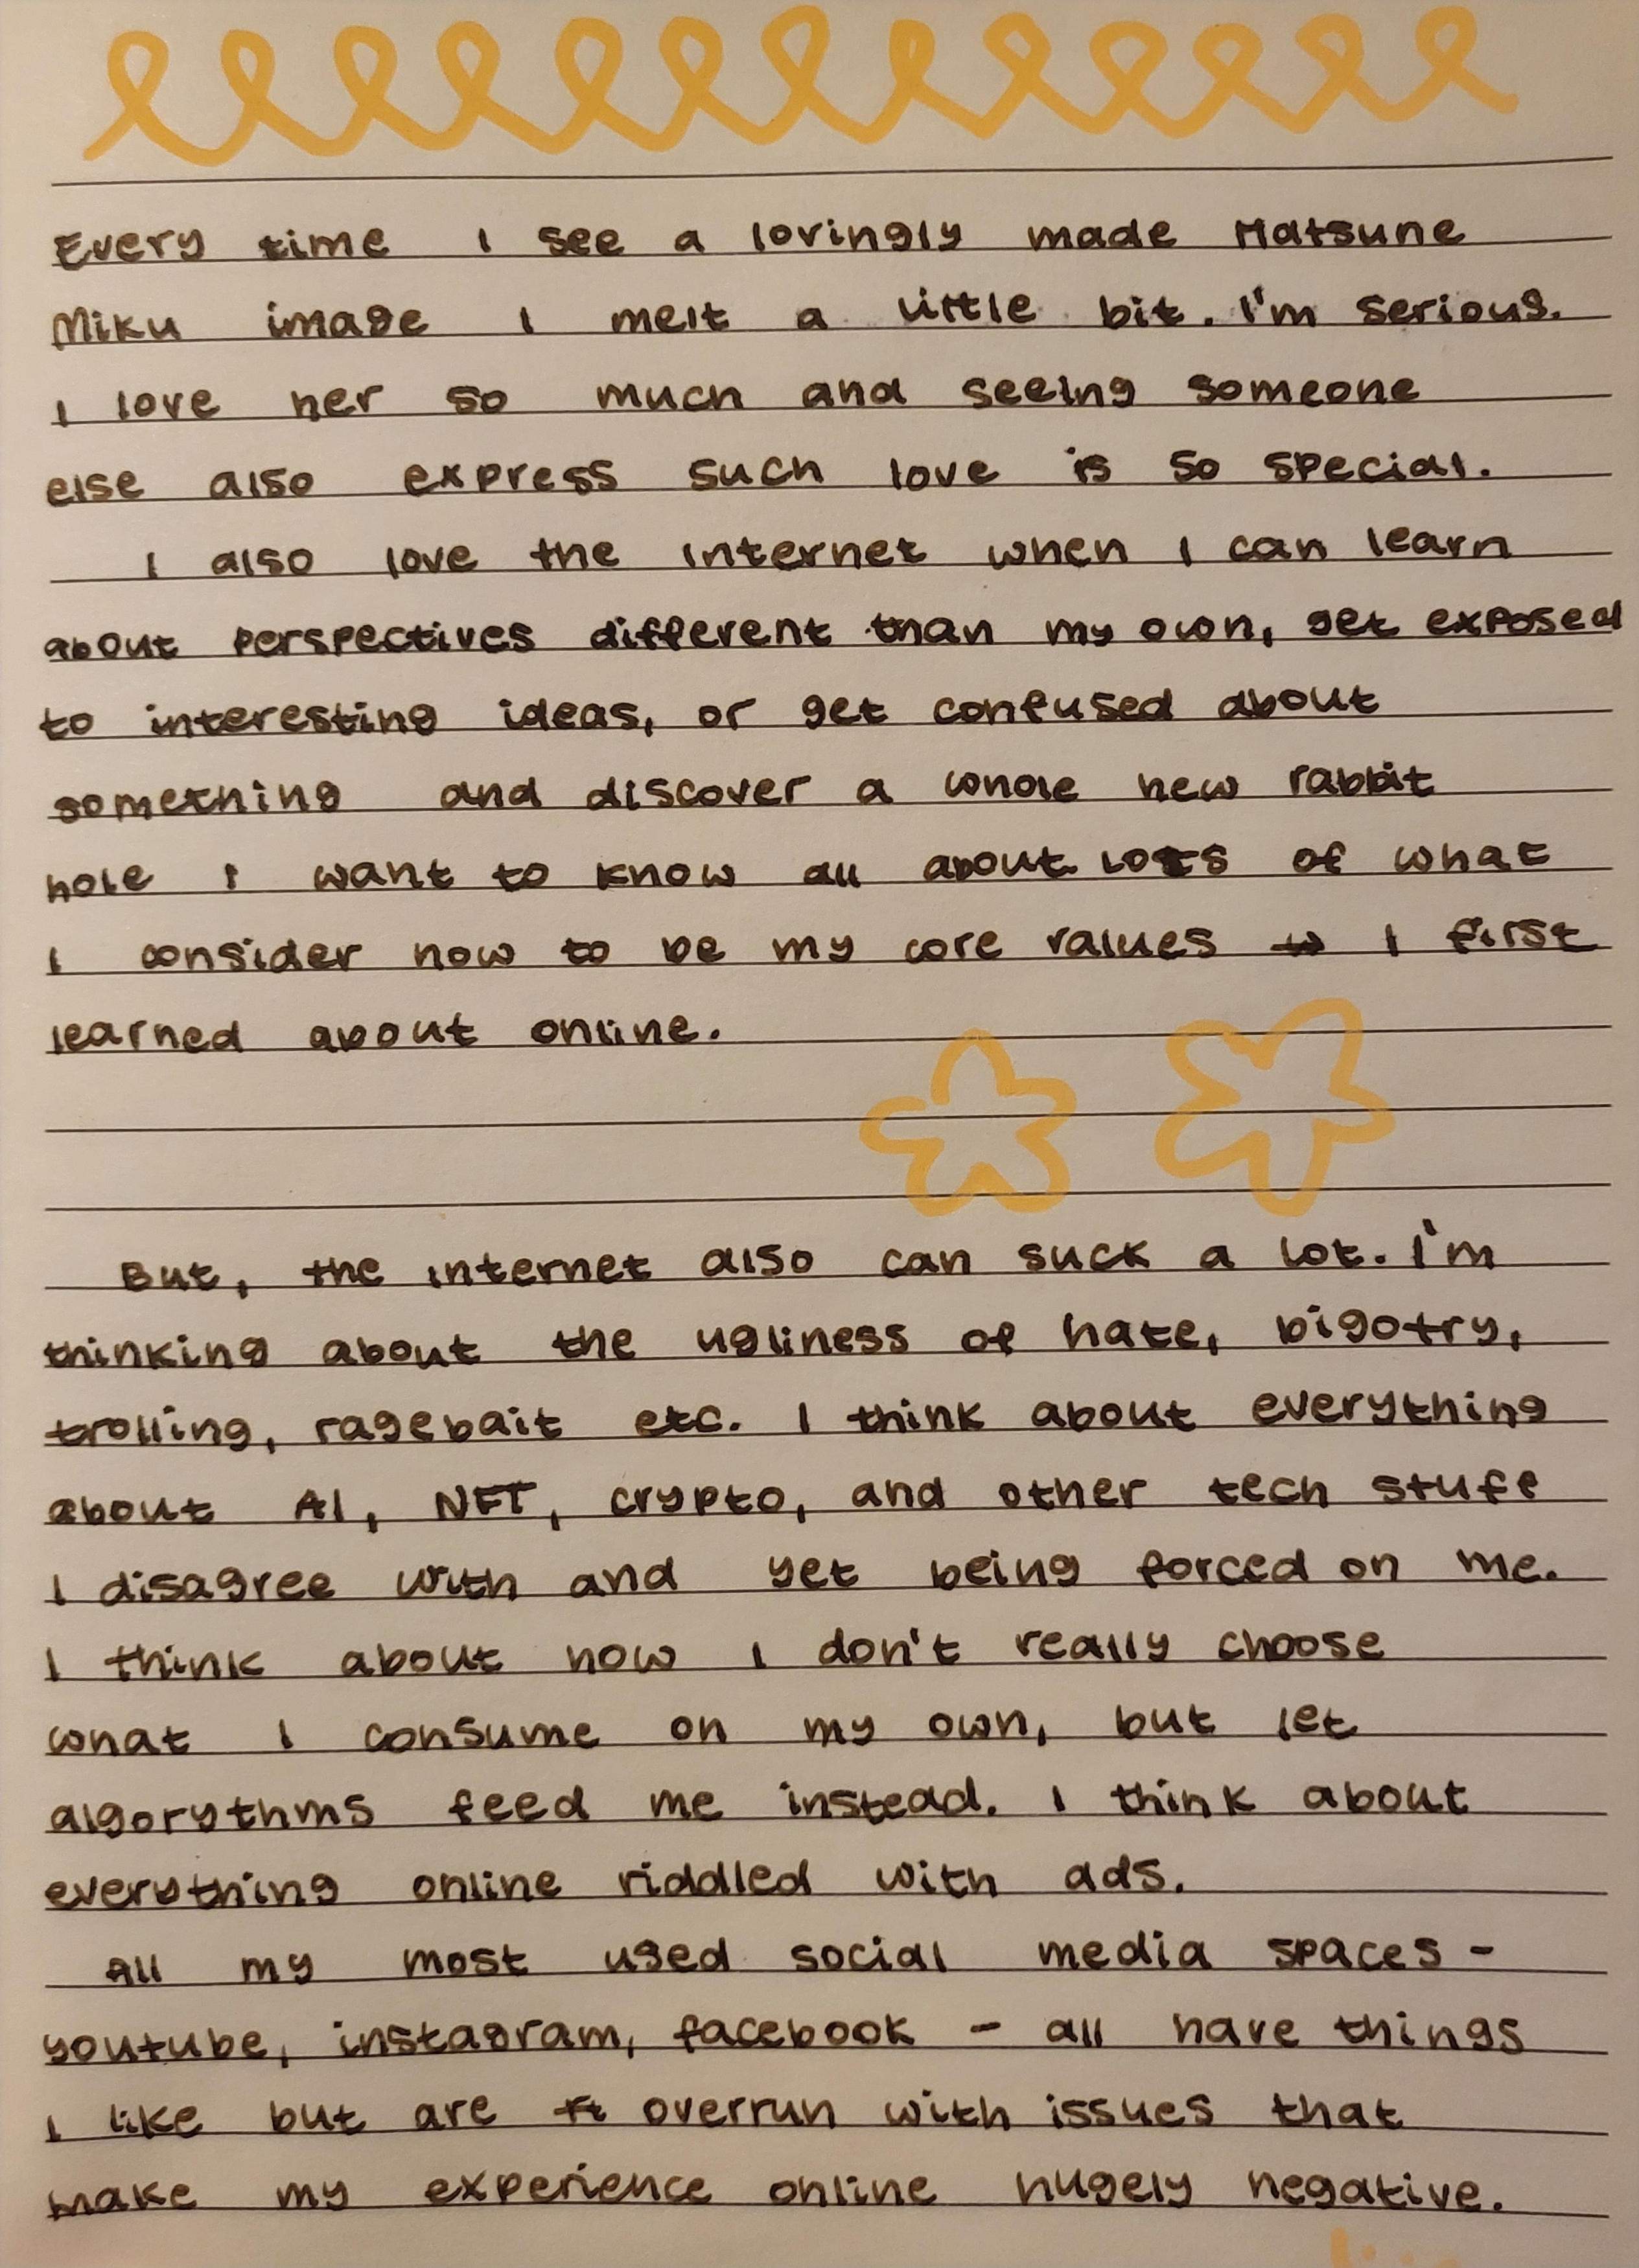 Every time I see a lovingly made Hatsune
Miku image I melt a little bit. I'm serious.
I love her so much and seeing someone
else also express such love is so special.
I also love the internet when I can learn
about perspectives different than my own, get exposed
to interesting ideas, or get confused about
something and discover a whole new rabbit
hole I want to know all about. Lots of what
I consider now to be my core values I first
learned about online.
But, the internet also can suck a lot. I'm
thinking about the ugliness of hate, bigotry,
trolling, ragebait etc. I think about everything
about AI, NFT, crypto, and other tech stuff
I disagree with and yet being forced on me.
I think about how I don't really choose
what I consume on my own, but let
algorythms feed me instead. I think about
everything online riddled with ads.
All my most used social media spaces -
youtube, instagram, facebook - all have things
I like but are overrun with issues that
make my experience online hugely negative.